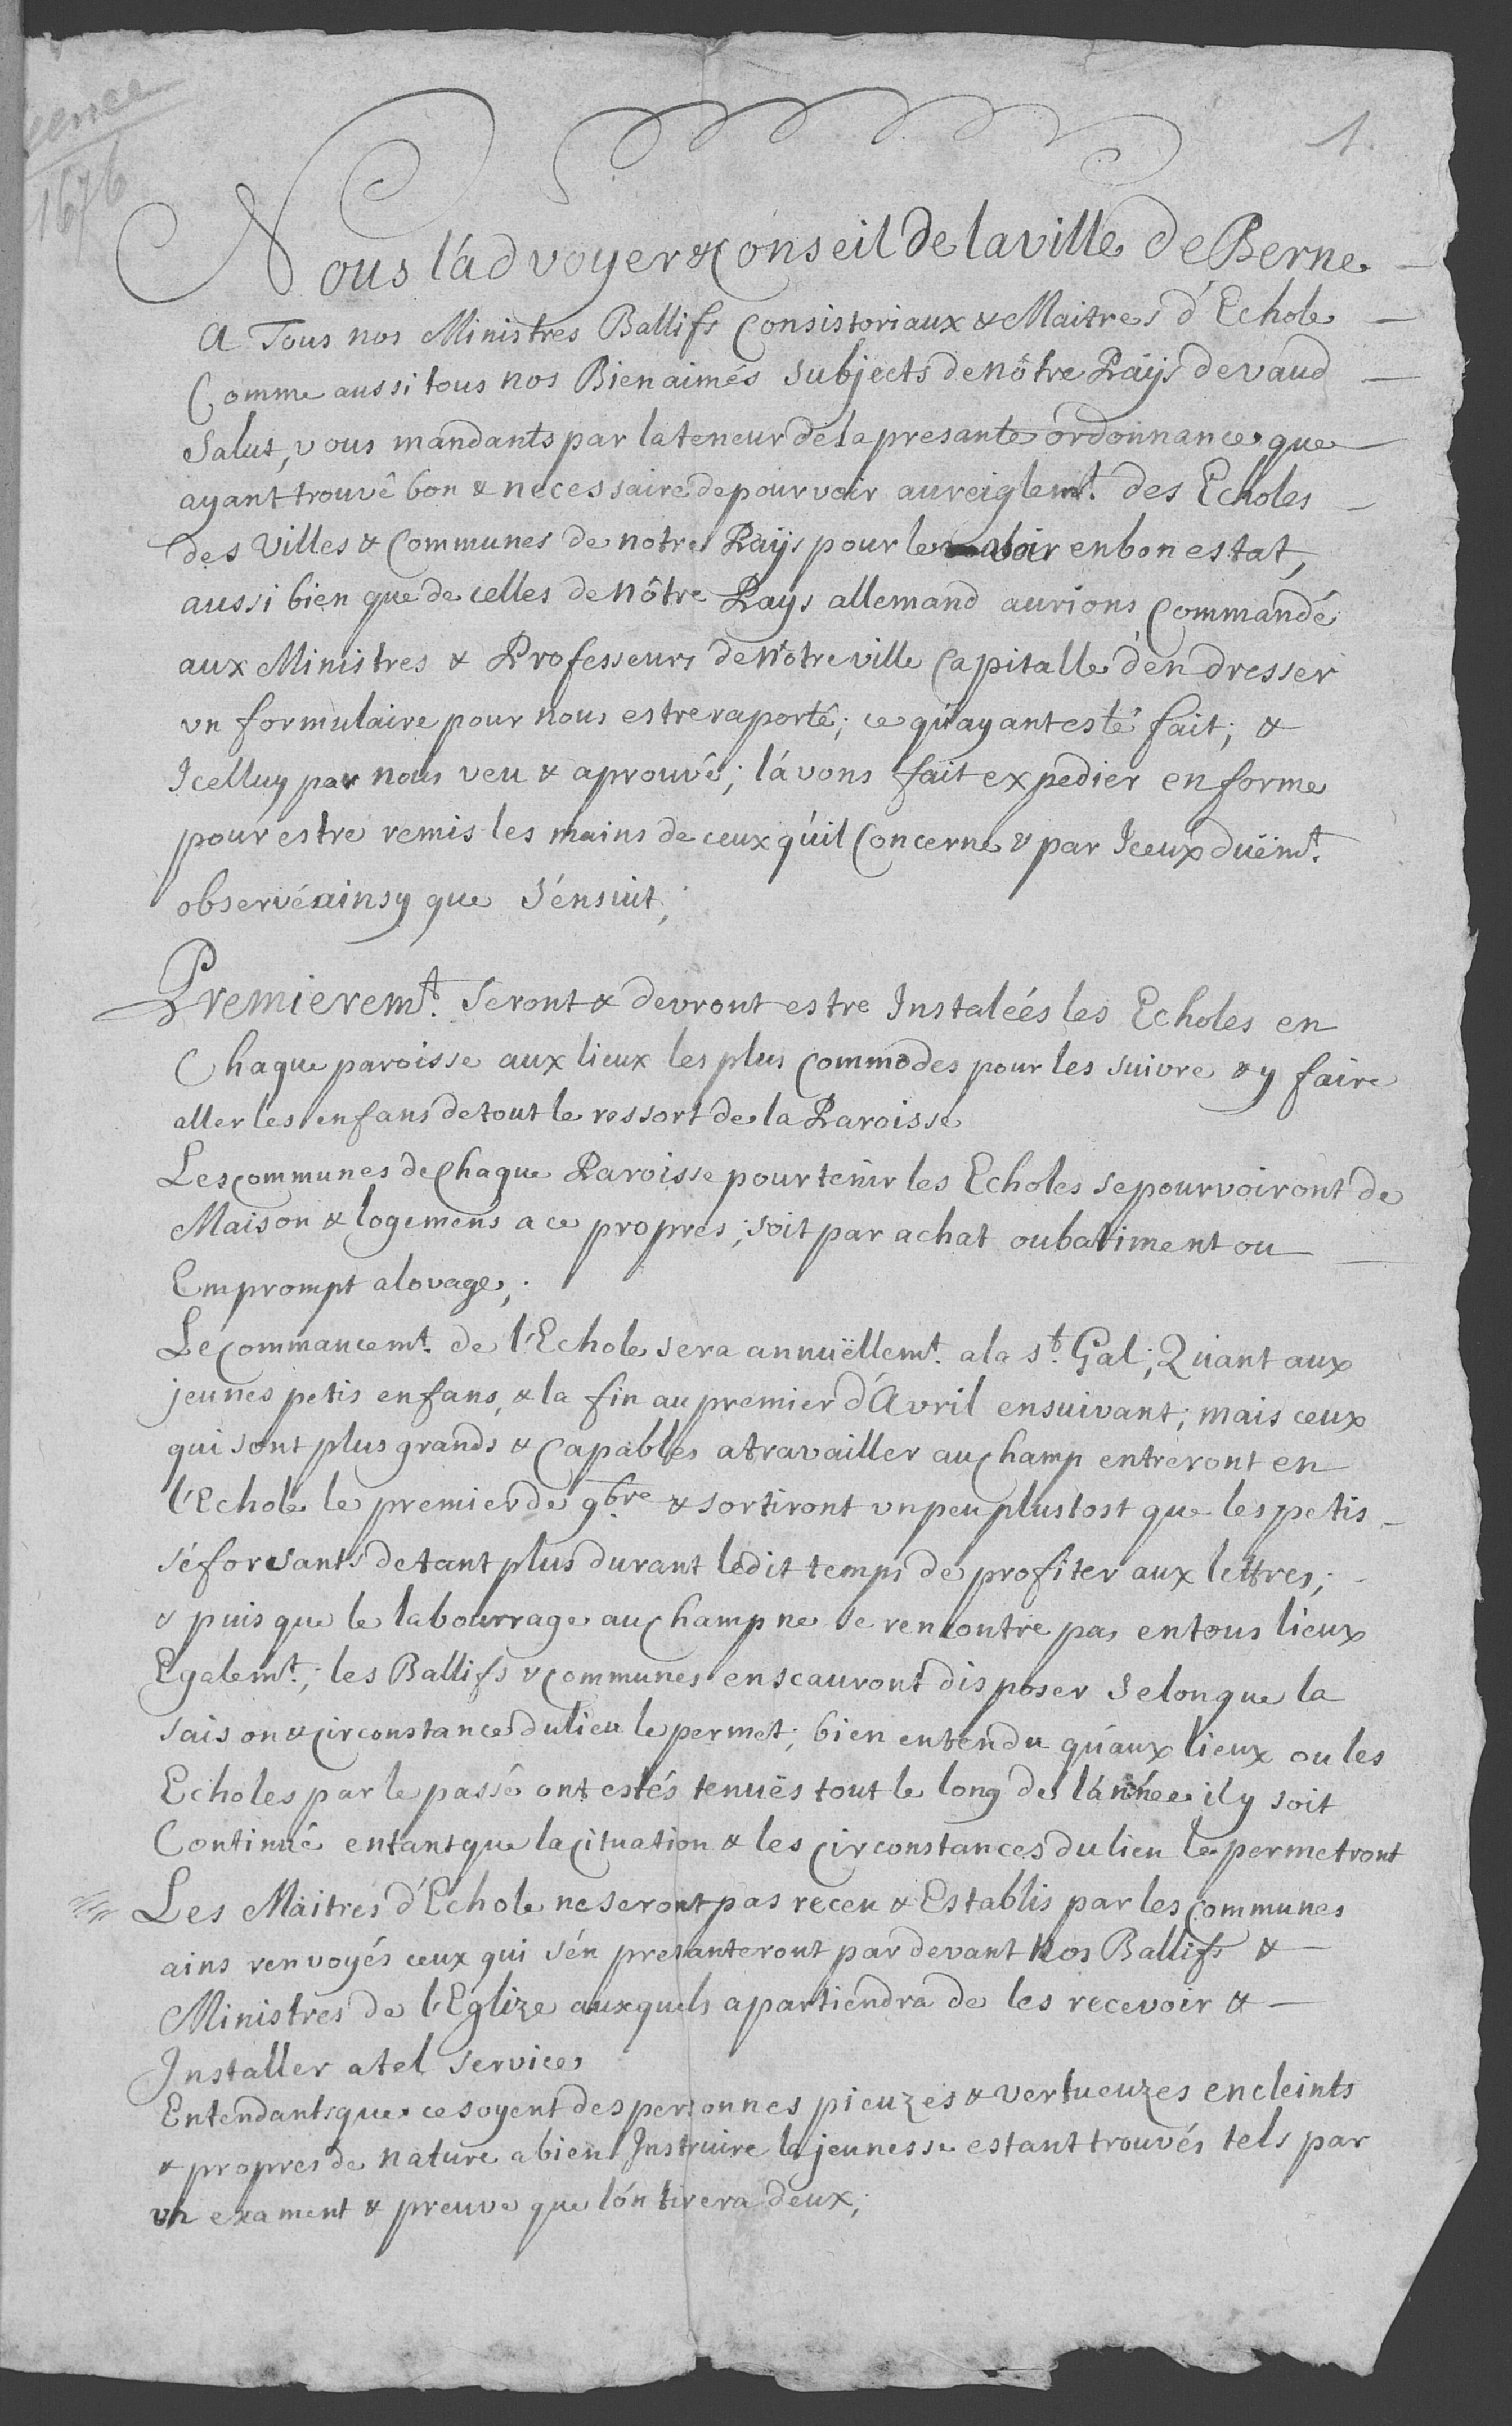 1676
1.
Nous l'advoyer & Conseil de la ville de Berne
A Tous nos Ministres Ballifs Consistoriaux & Maitres d'Echole
Comme aussi tous nos Bien aimés subjects de nôtre Päÿs de vaud
Salut, vous mandants par la teneur de la presante ordonnance, que
ayant trouvé bon & necessaire de pourvoir au reiglemt. des Echoles
des Villes & Communes de notre Päÿs pour le voir en bon estat,
aussi bien que de celles de nôtre Pays allemand aurions Commandé
aux Ministres & Professeurs de Nôtre ville Capitalle d'en dresser
un formulaire pour nous estre raporté; ce qu'ayant esté fait; &
Icelluy par nous veu & aprouvé; l'avons fait expedier en forme
pour estre remis les mains de ceux qu'il Concerne & par Iceux duëmt.
observé ainsy que s'ensuit;
Premieremt. Seront & devront estre Instaléés les Echoles en
Chaque paroisse aux lieux les plus Commodes pour les suivre & y faire
aller les enfans de tout le ressort de la Paroisse
Les communes de Chaque Paroisse pour tenir les Echoles se pourvoiront de
Maison & logemens a ce propres; soit par achat ou batiment ou
Emprompt a lovage;
Le Commancemt. de l'Echole sera annuëllemt. a la st. Gal; Quant aux
jeunes petis enfans, & la fin au premier d'Avril ensuivant; mais ceux
qui sont plus grands & Capables a travailler au Champ entreront en
l'Echole le premier de 9bre & sortiront un peu plustost que les petis
s'éforsants de tant plus durant ledit temps de profiter aux lettres;
& puis que le labourrage au Champ ne se rencontre pas en tous lieux
Egalemt.; les Ballifs & Communes en scauront disposer selon que la
saison & Circonstance du lieu le permet; bien entendu qu'aux lieux ou les
Echoles par le passé ont estés tenuës tout le long de l'année il y soit
Continué entant que la Cituation & les Circonstances du lieu le permetront
Les Maitres d'Echole ne seront pas receu & Establis par les Communes
ains renvoyés ceux qui s'en presanteront par devant Nos Ballifs &
Ministres de l'Eglize auxquels apartiendra de les recevoir &
Installer a tel service
Entendants que ce soyent des personnes pieuzes & vertueuzes encleints
& propres de nature a bien Instruire la jeunesse estant trouvés tels par
un exament & preuve que l'on tirera deux;